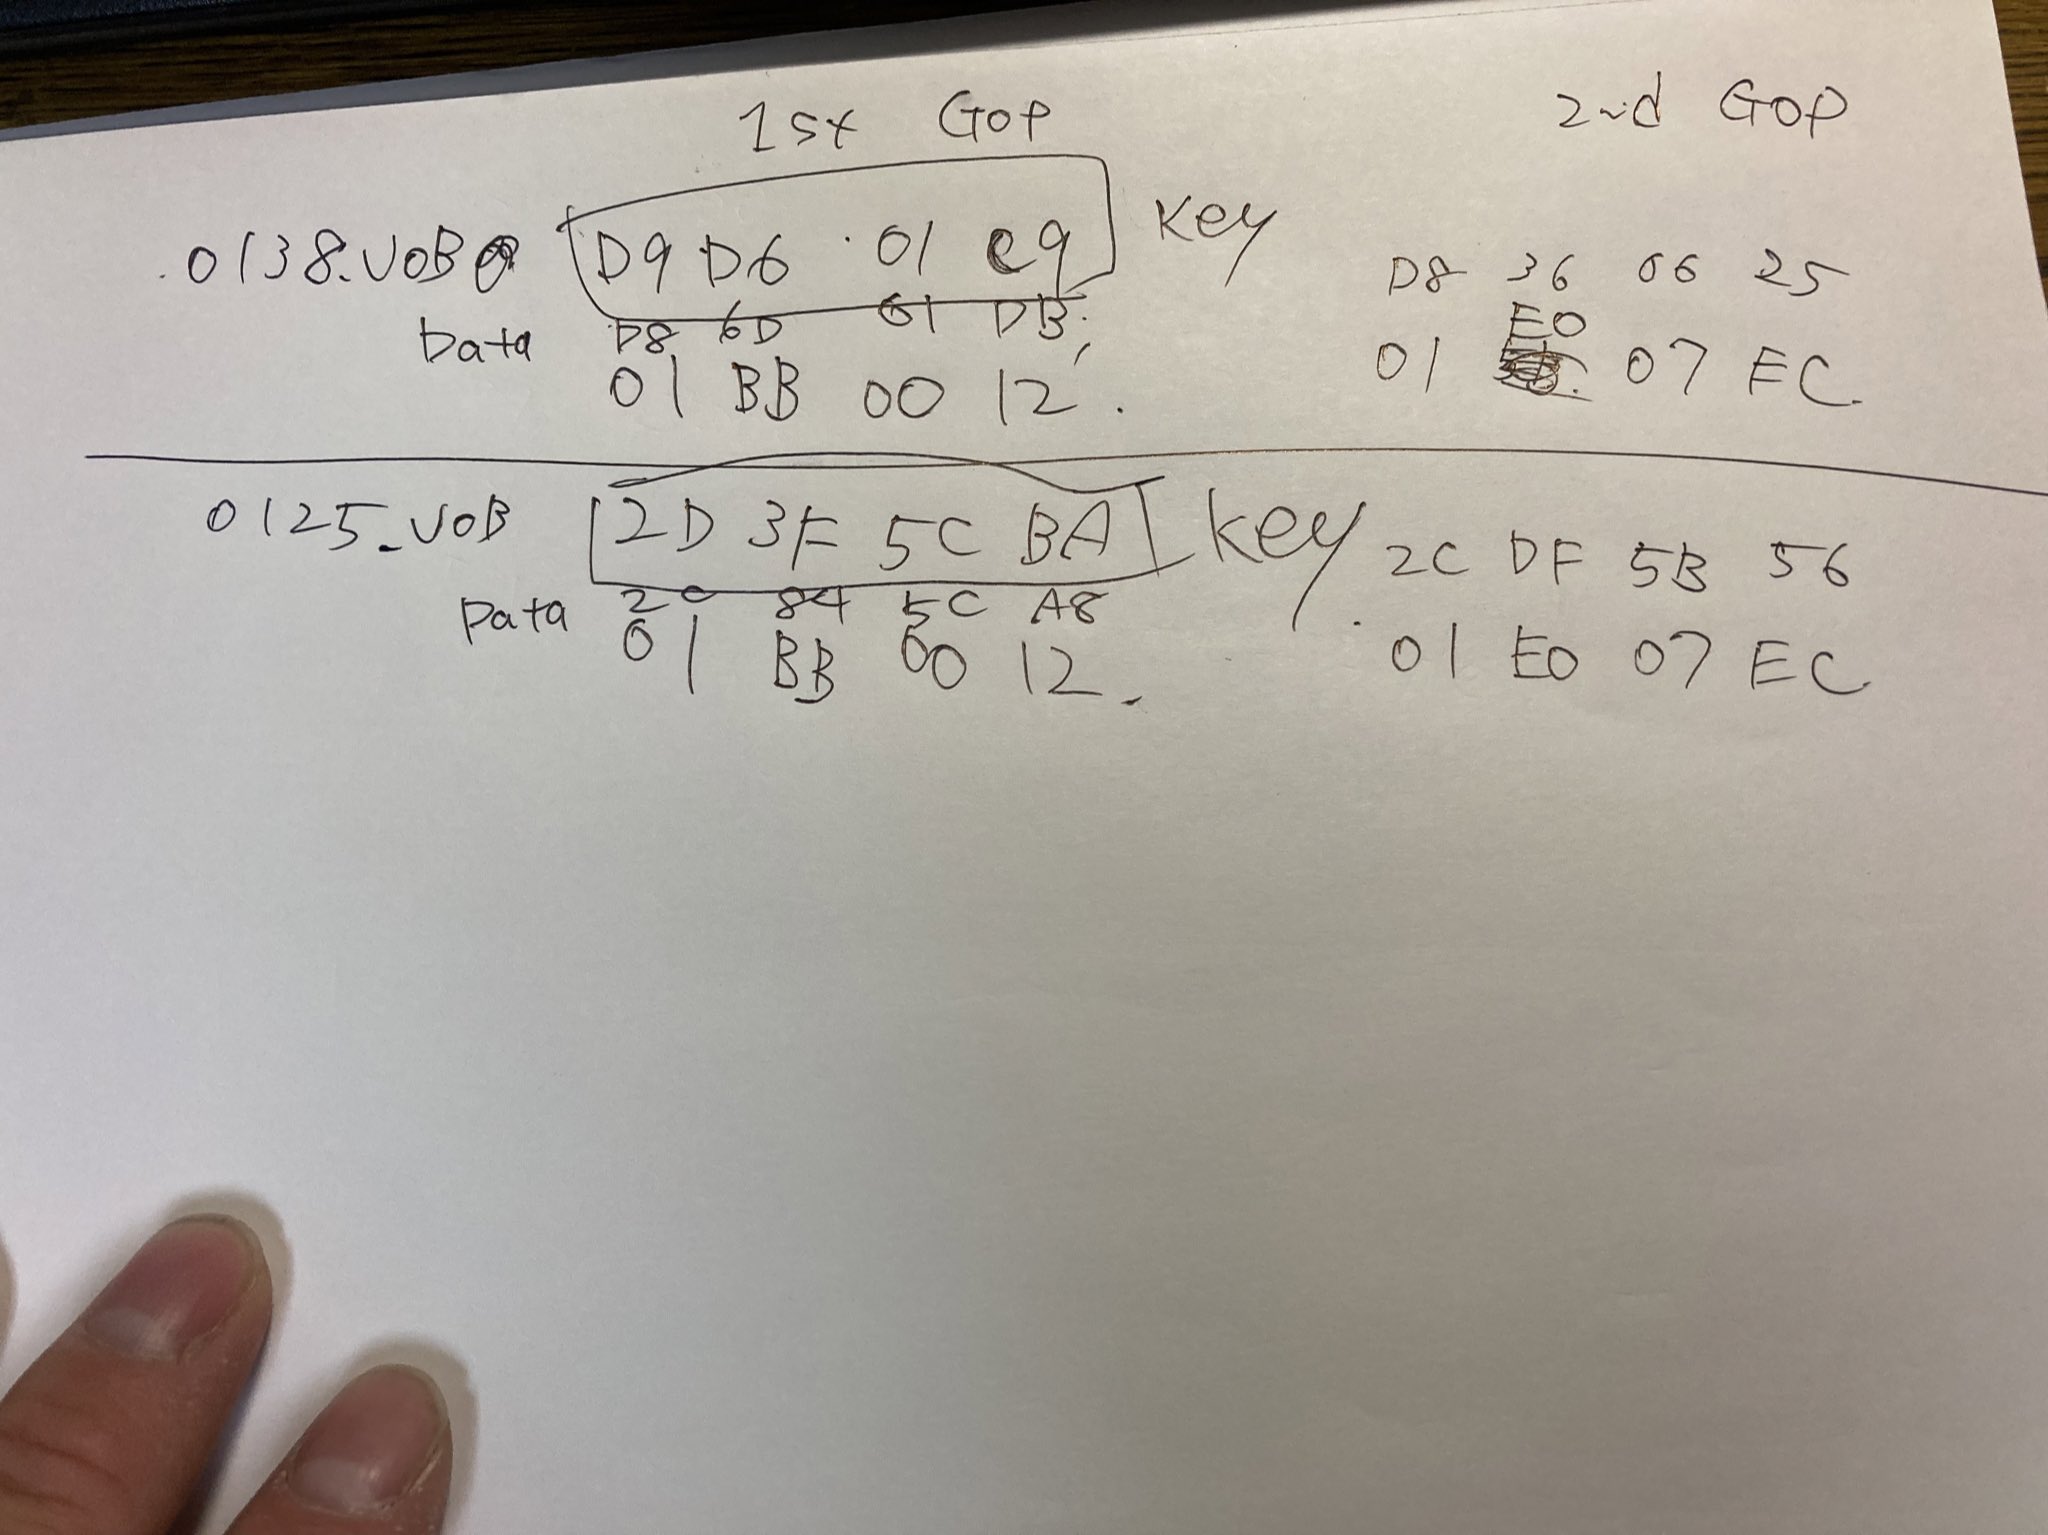 1st GOP
2nd GOP
0138.VOB D9 D6 01 C9 Key
D8 36 06 25
Data D8 6D 01 DB
E0
01 BB 00 12.
01 07 EC.
0125.VOB 2D 3F 5C BA Key
2C DF 5B 56
Data 2C 84 5C A8
01 BB 00 12.
01 E0 07 EC